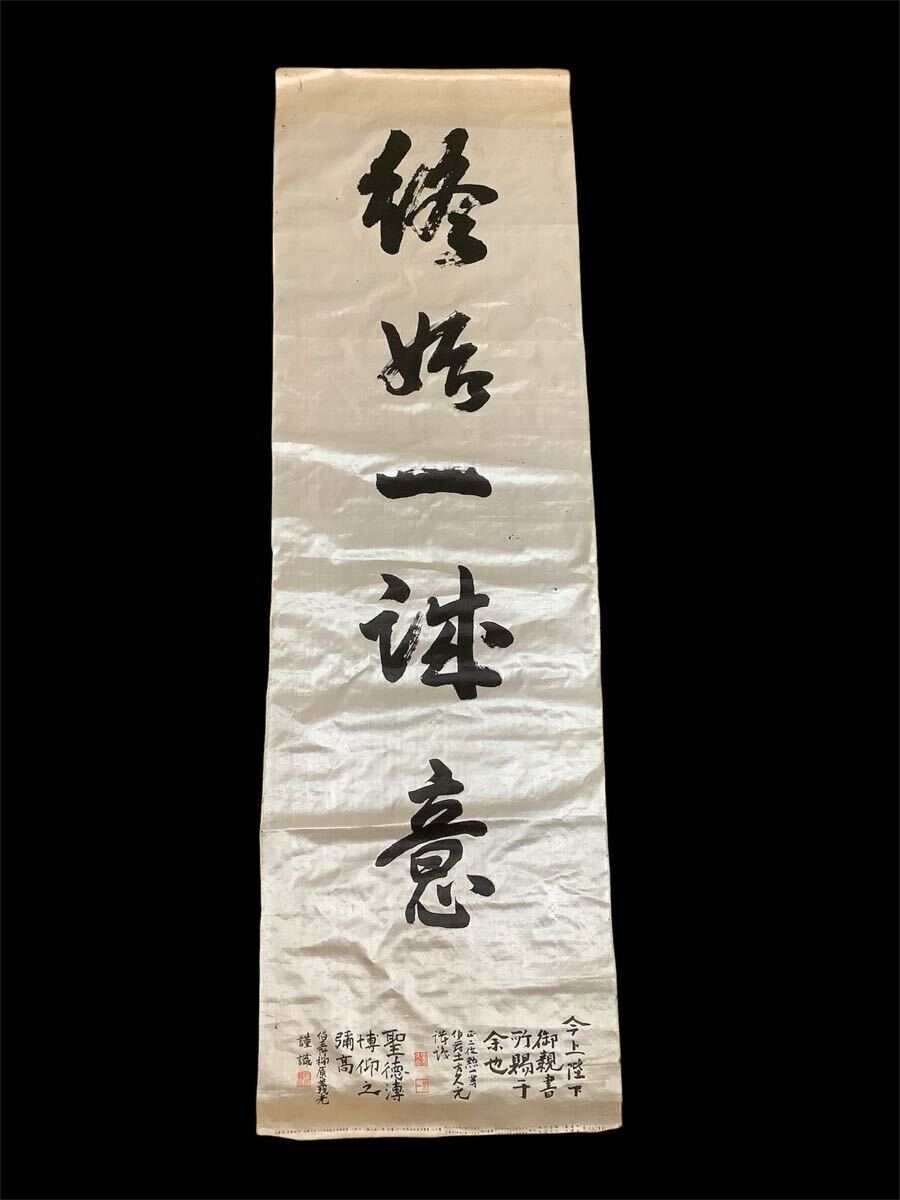 終始一誠意
今上陛下
御親書
所賜于
余也
正二位勲一等
伯爵土方久元
謹識
聖徳溥
博仰之
彌高
伯爵柳原義光
謹識